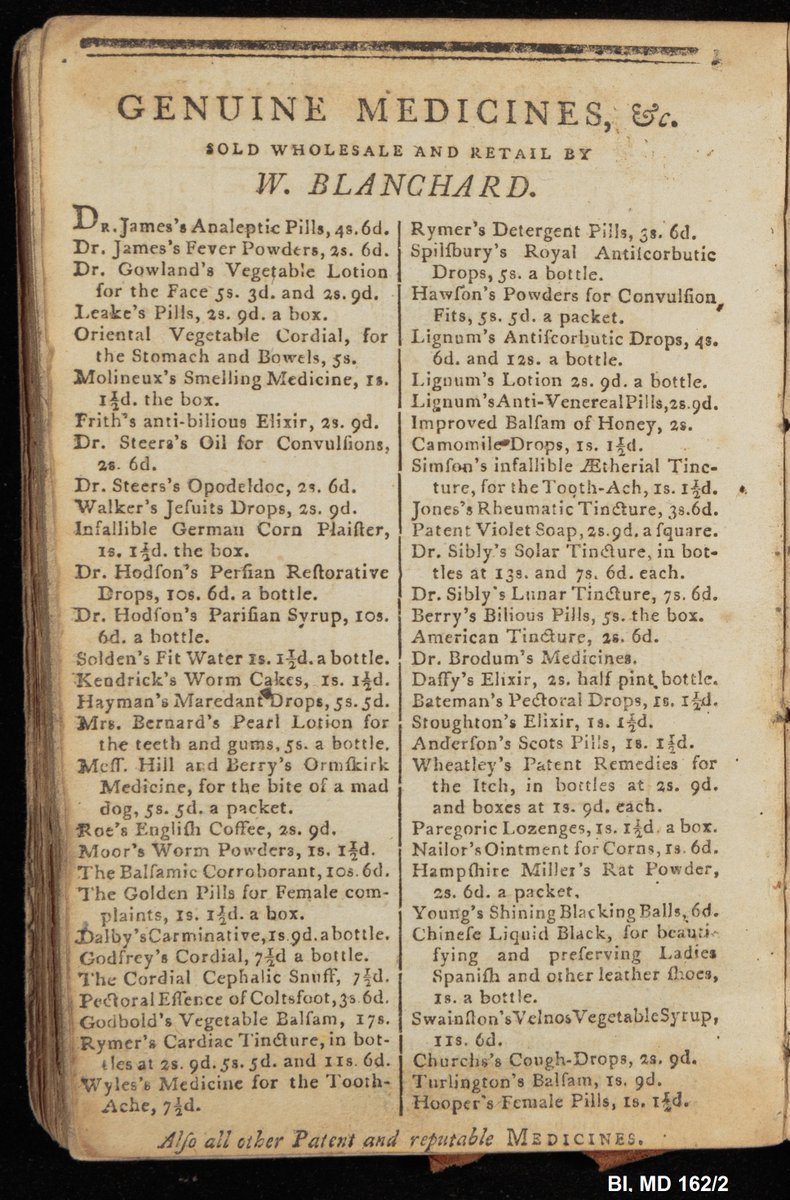 GENUINE MEDICINES, &c.
SOLD WHOLESALE AND RETAIL BY
W. BLANCHARD.
DR. James's Analeptic Pills, 4s. 6d.
Dr. James's Fever Powders, 2s. 6d.
Dr. Gowland's Vegetable Lotion
for the Face 5s. 3d. and 2s. 9d.
Leake's Pills, 2s. 9d. a box.
Oriental Vegetable Cordial, for
the Stomach and Bowels, 5s.
Molineux's Smelling Medicine, 1s.
1½d. the box.
Frith's anti-bilious Elixir, 2s. 9d.
Dr. Steers's Oil for Convulſions,
2s. 6d.
Dr. Steers's Opodeldoc, 2s. 6d.
Walker's Jeſuits Drops, 2s. 9d.
Infallible German Corn Plaiſter,
1s. 1½d. the box.
Dr. Hodſon's Perſian Reſtorative
Drops, 10s. 6d. a bottle.
Dr. Hodſon's Pariſian Syrup, 10s.
6d. a bottle.
Solden's Fit Water 1s. 1½d. a bottle.
Kendrick's Worm Cakes, 1s. 1½d.
Hayman's Maredant Drops, 5s. 5d.
Mrs. Bernard's Pearl Lotion for
the teeth and gums, 5s. a bottle.
Meſſ. Hill and Berry's Ormſkirk
Medicine, for the bite of a mad
dog, 5s. 5d. a packet.
Roe's Engliſh Coffee, 2s. 9d.
Moor's Worm Powders, 1s. 1½d.
The Balſamic Corroborant, 10s. 6d.
The Golden Pills for Female com-
plaints, 1s. 1½d. a box.
Dalby's Carminative, 1s 9d. a bottle.
Godfrey's Cordial, 7½d a bottle.
The Cordial Cephalic Snuff, 7½d.
Pectoral Eſſence of Coltsfoot, 3s. 6d.
Godbold's Vegetable Balſam, 17s.
Rymer's Cardiac Tincture, in bot-
tles at 2s. 9d. 5s. 5d. and 11s. 6d.
Wyles's Medicine for the Tooth-
Ache, 7½d.
Rymer's Detergent Pills, 3s. 6d.
Spilſbury's Royal Antiſcorbutic
Drops, 5s. a bottle.
Hawſon's Powders for Convulſion
Fits, 5s. 5d. a packet.
Lignum's Antiſcorbutic Drops, 4s.
6d. and 12s. a bottle.
Lignum's Lotion 2s. 9d. a bottle.
Lignum's Anti-Venereal Pills, 2s. 9d.
Improved Balſam of Honey, 2s.
Camomile Drops, 1s. 1½d.
Simſon's infallible Ætherial Tinc-
ture, for the Tooth-Ach, 1s. 1½d.
Jones's Rheumatic Tincture, 3s. 6d.
Patent Violet Soap, 2s. 9d. a ſquare.
Dr. Sibly's Solar Tincture, in bot-
tles at 13s. and 7s. 6d. each.
Dr. Sibly's Lunar Tincture, 7s. 6d.
Berry's Bilious Pills, 5s. the box.
American Tincture, 2s. 6d.
Dr. Brodum's Medicines.
Daffy's Elixir, 2s. half pint bottle.
Bateman's Pectoral Drops, 1s. 1½d.
Stoughton's Elixir, 1s. 1½d.
Anderſon's Scots Pills, 1s. 1½d.
Wheatley's Patent Remedies for
the Itch, in bottles at 2s. 9d.
and boxes at 1s. 9d. each.
Paregoric Lozenges, 1s. 1½d. a box.
Nailor's Ointment for Corns, 1s. 6d.
Hampſhire Miller's Rat Powder,
2s. 6d. a packet.
Young's Shining Blacking Balls, 6d.
Chineſe Liquid Black, for beauti-
fying and preferving Ladies
Spaniſh and other leather ſhoes,
1s. a bottle.
Swainſton's Velnos Vegetable Syrup,
11s. 6d.
Churchs's Cough-Drops, 2s. 9d.
Turlington's Balſam, 1s. 9d.
Hooper's Female Pills, 1s. 1½d.
Alſo all other Patent and reputable MEDICINES.
BI, MD 162/2